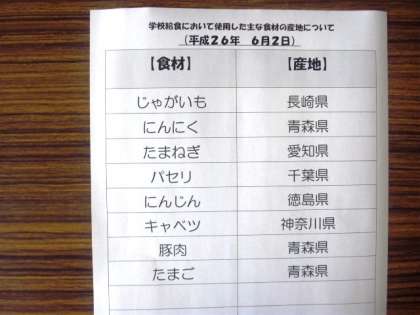 学校給食において使用した主な食材の産地について
（平成２６年　６月２日）
【食材】　【産地】
じゃがいも　長崎県
にんにく　青森県
たまねぎ　愛知県
パセリ　千葉県
にんじん　徳島県
キャベツ　神奈川県
豚肉　青森県
たまご　青森県